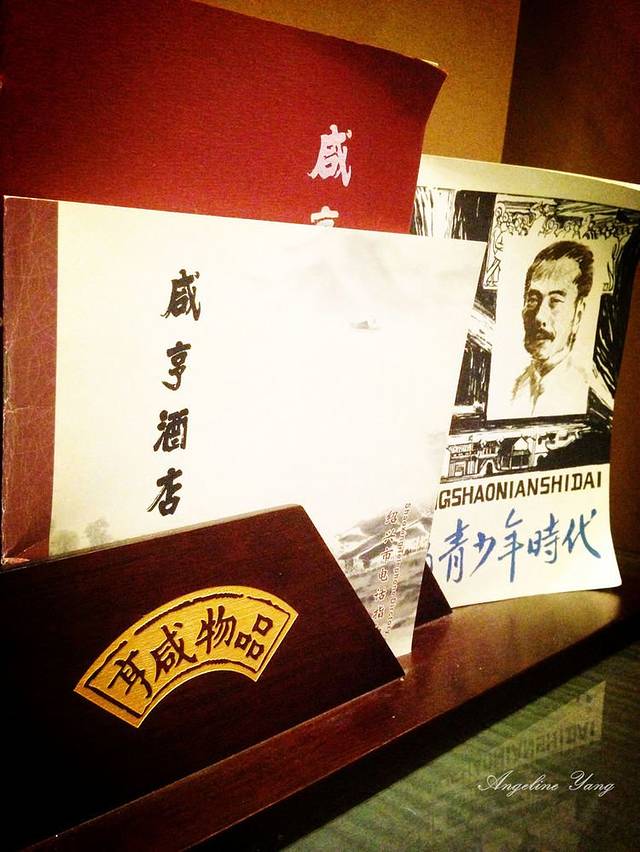 咸
亨
咸亨酒店
绍兴市电话指
GSHAONIANSHIDAI
青少年時代
亨咸物品
Angeline Yang